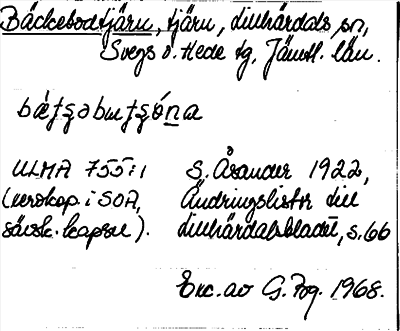 Bäckebodtjärn, tjärn, Linhärdals sn,
Svegs o. Hede tg, Jämtl. län.
bátʂəbutʂóna
ULMA 755:1 S. Årander 1922,
(verskap. i SOA, Ändringslistor till
särsk. kapsel). Linhärdalsbladet, s. 66
Exc. av G. Fog. 1968.